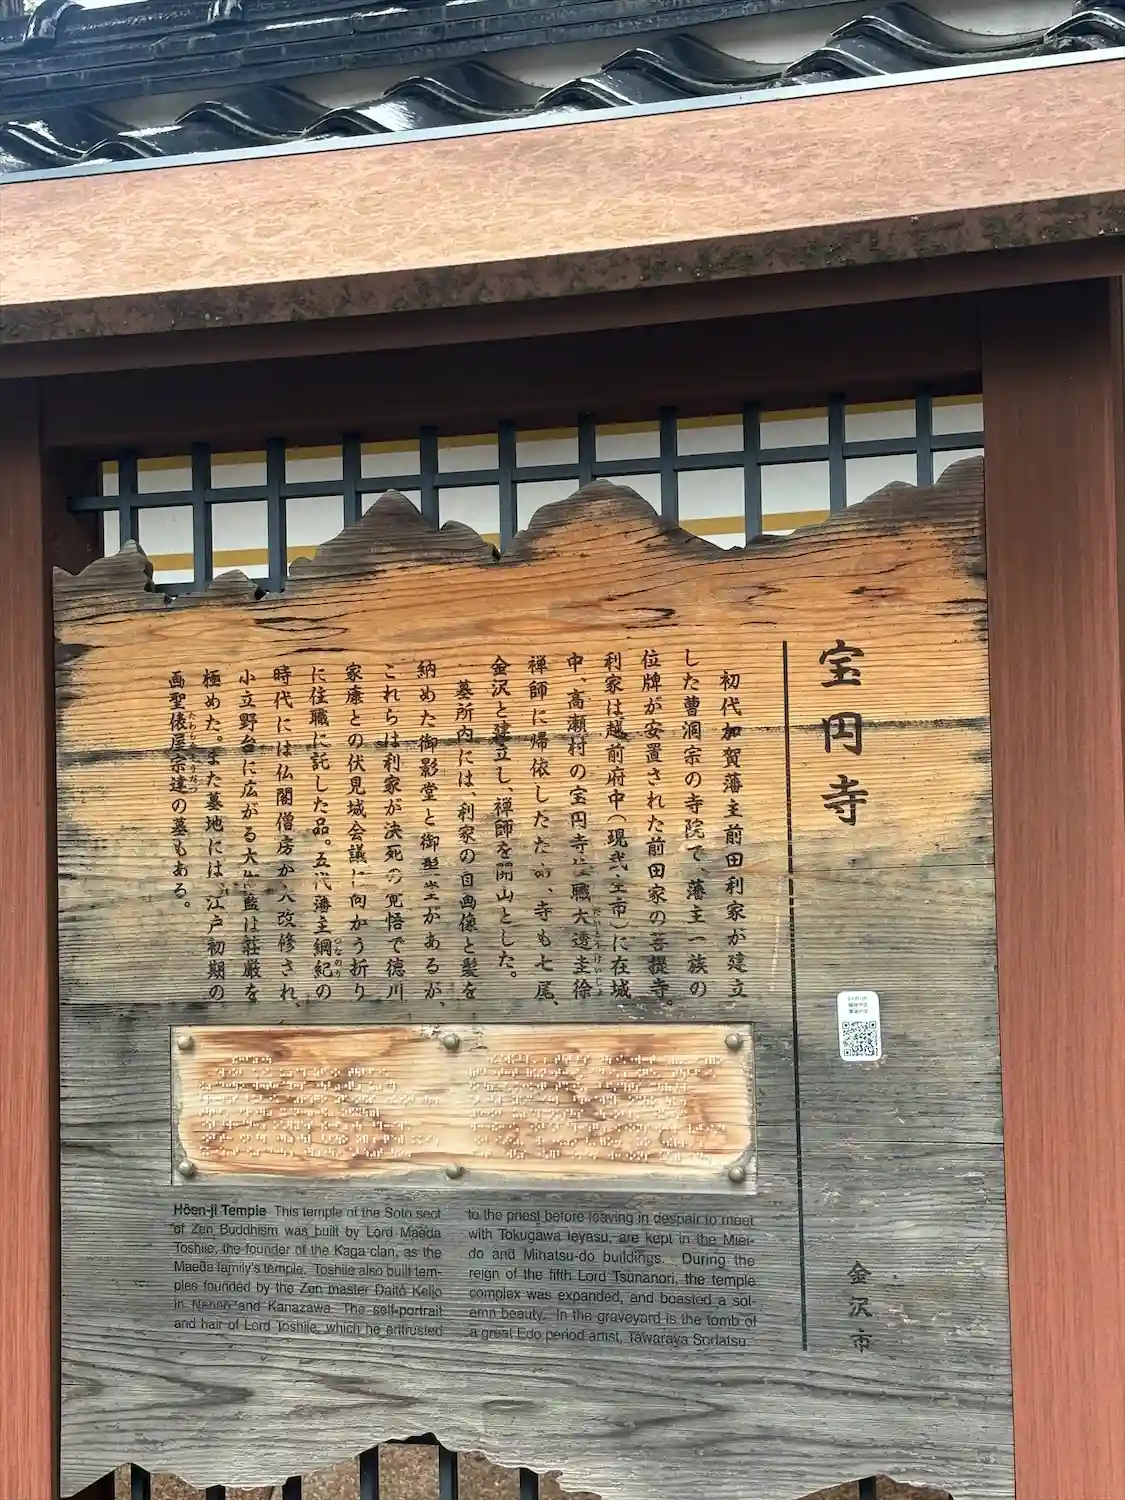 宝円寺
初代加賀藩主前田利家が建立
した曹洞宗の寺院で、藩主一族の
位牌が安置された前田家の菩提寺。
利家は越前府中(現武生市)に在城
中、高瀬村の宝円寺住職大透圭徐
だいとうけいじょ
禅師に帰依したため、寺も七尾、
金沢と建立し、禅師を開山とした。
墓所内には、利家の自画像と髪を
納めた御影堂と御髪堂があるが、
これらは利家が決死の覚悟で徳川
家康との伏見城会議に向かう折り
に住職に託した品。五代藩主綱紀の
つなのり
時代には仏閣僧房が改修され、
小立野台に広がる大伽藍は荘厳を
極めた。また墓地には、江戸初期の
画聖俵屋宗達の墓もある。
たわらやそうたつ
Hōen-ji Temple This temple of the Soto sect
of Zen Buddhism was built by Lord Maeda
Toshiie, the founder of the Kaga clan, as the
Maeda family's temple. Toshiie also built tem-
ples founded by the Zen master Daitō Keijo
in Nanao and Kanazawa. The self-portrait
and hair of Lord Toshiie, which he entrusted
to the priest before leaving in despair to meet
with Tokugawa Ieyasu, are kept in the Miei-
do and Mihatsu-do buildings. During the
reign of the fifth Lord Tsunanori, the temple
complex was expanded, and boasted a sol-
emn beauty. In the graveyard is the tomb of
a great Edo period artist, Tawaraya Sōtatsu.
金沢市